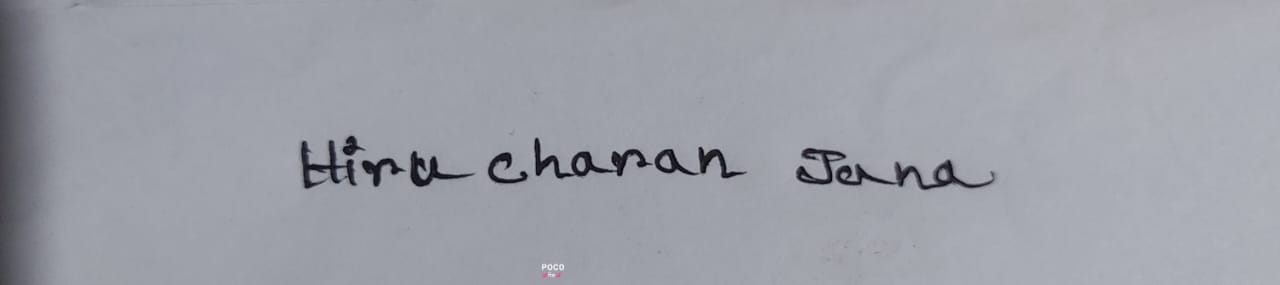 Hiru charan Jana
POCO